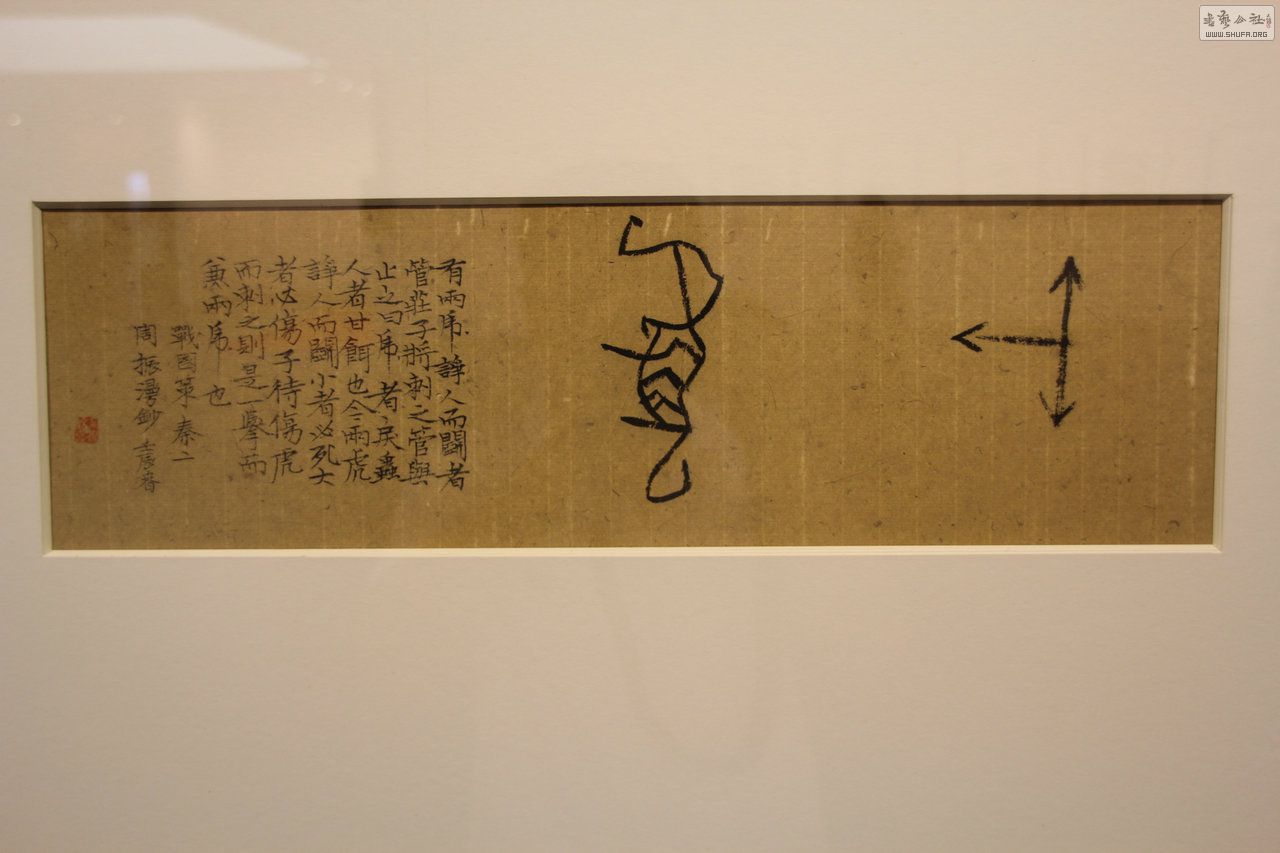 有兩虎諍人而鬭者
管莊子將刺之管與
止之曰虎者戾蟲
人者甘餌也今兩虎
諍人而鬭小者必死大
者必傷子待傷虎
而刺之則是一舉而
兼兩虎也
戰國策秦二
周振鈔壬辰春
書藝公社
WWW.SHUFA.ORG